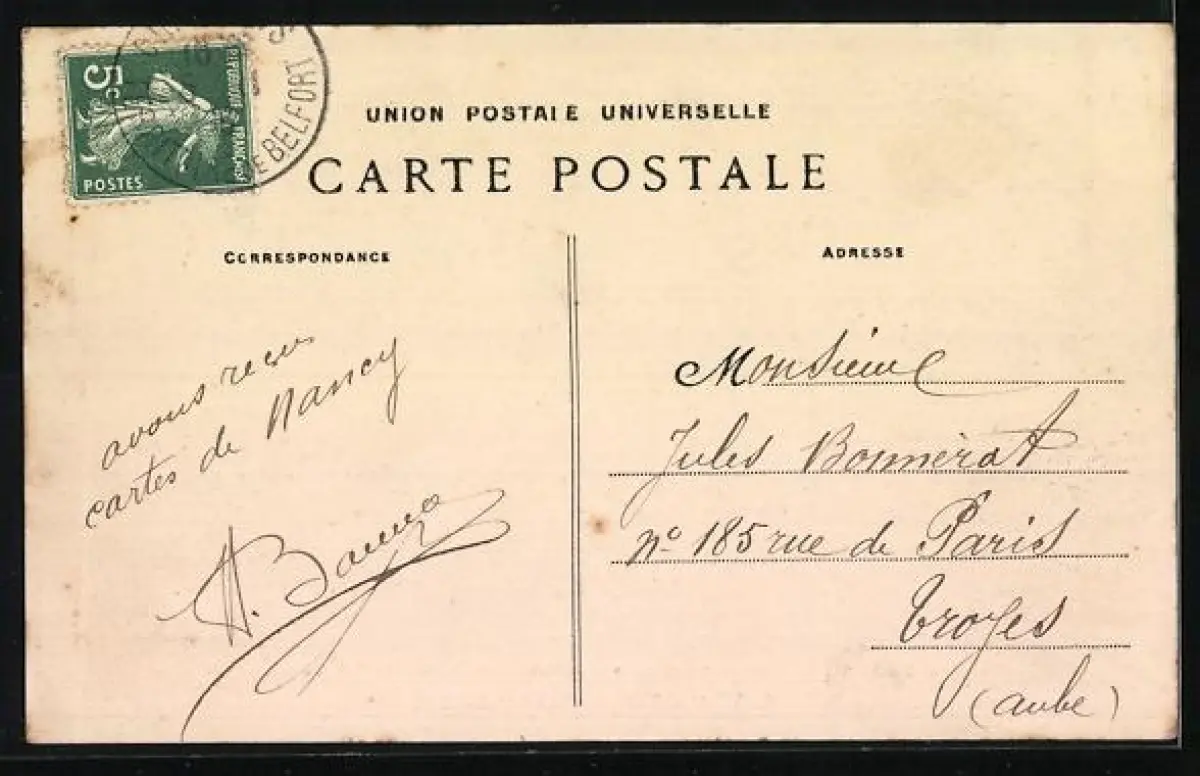 5c
POSTES
BELFORT
UNION POSTALE UNIVERSELLE
CARTE POSTALE
CORRESPONDANCE
avons reçu
cartes de Nancy
ADRESSE
Monsieur
Jules Bonnerot
n° 185 rue de Paris
Troyes
(aube)